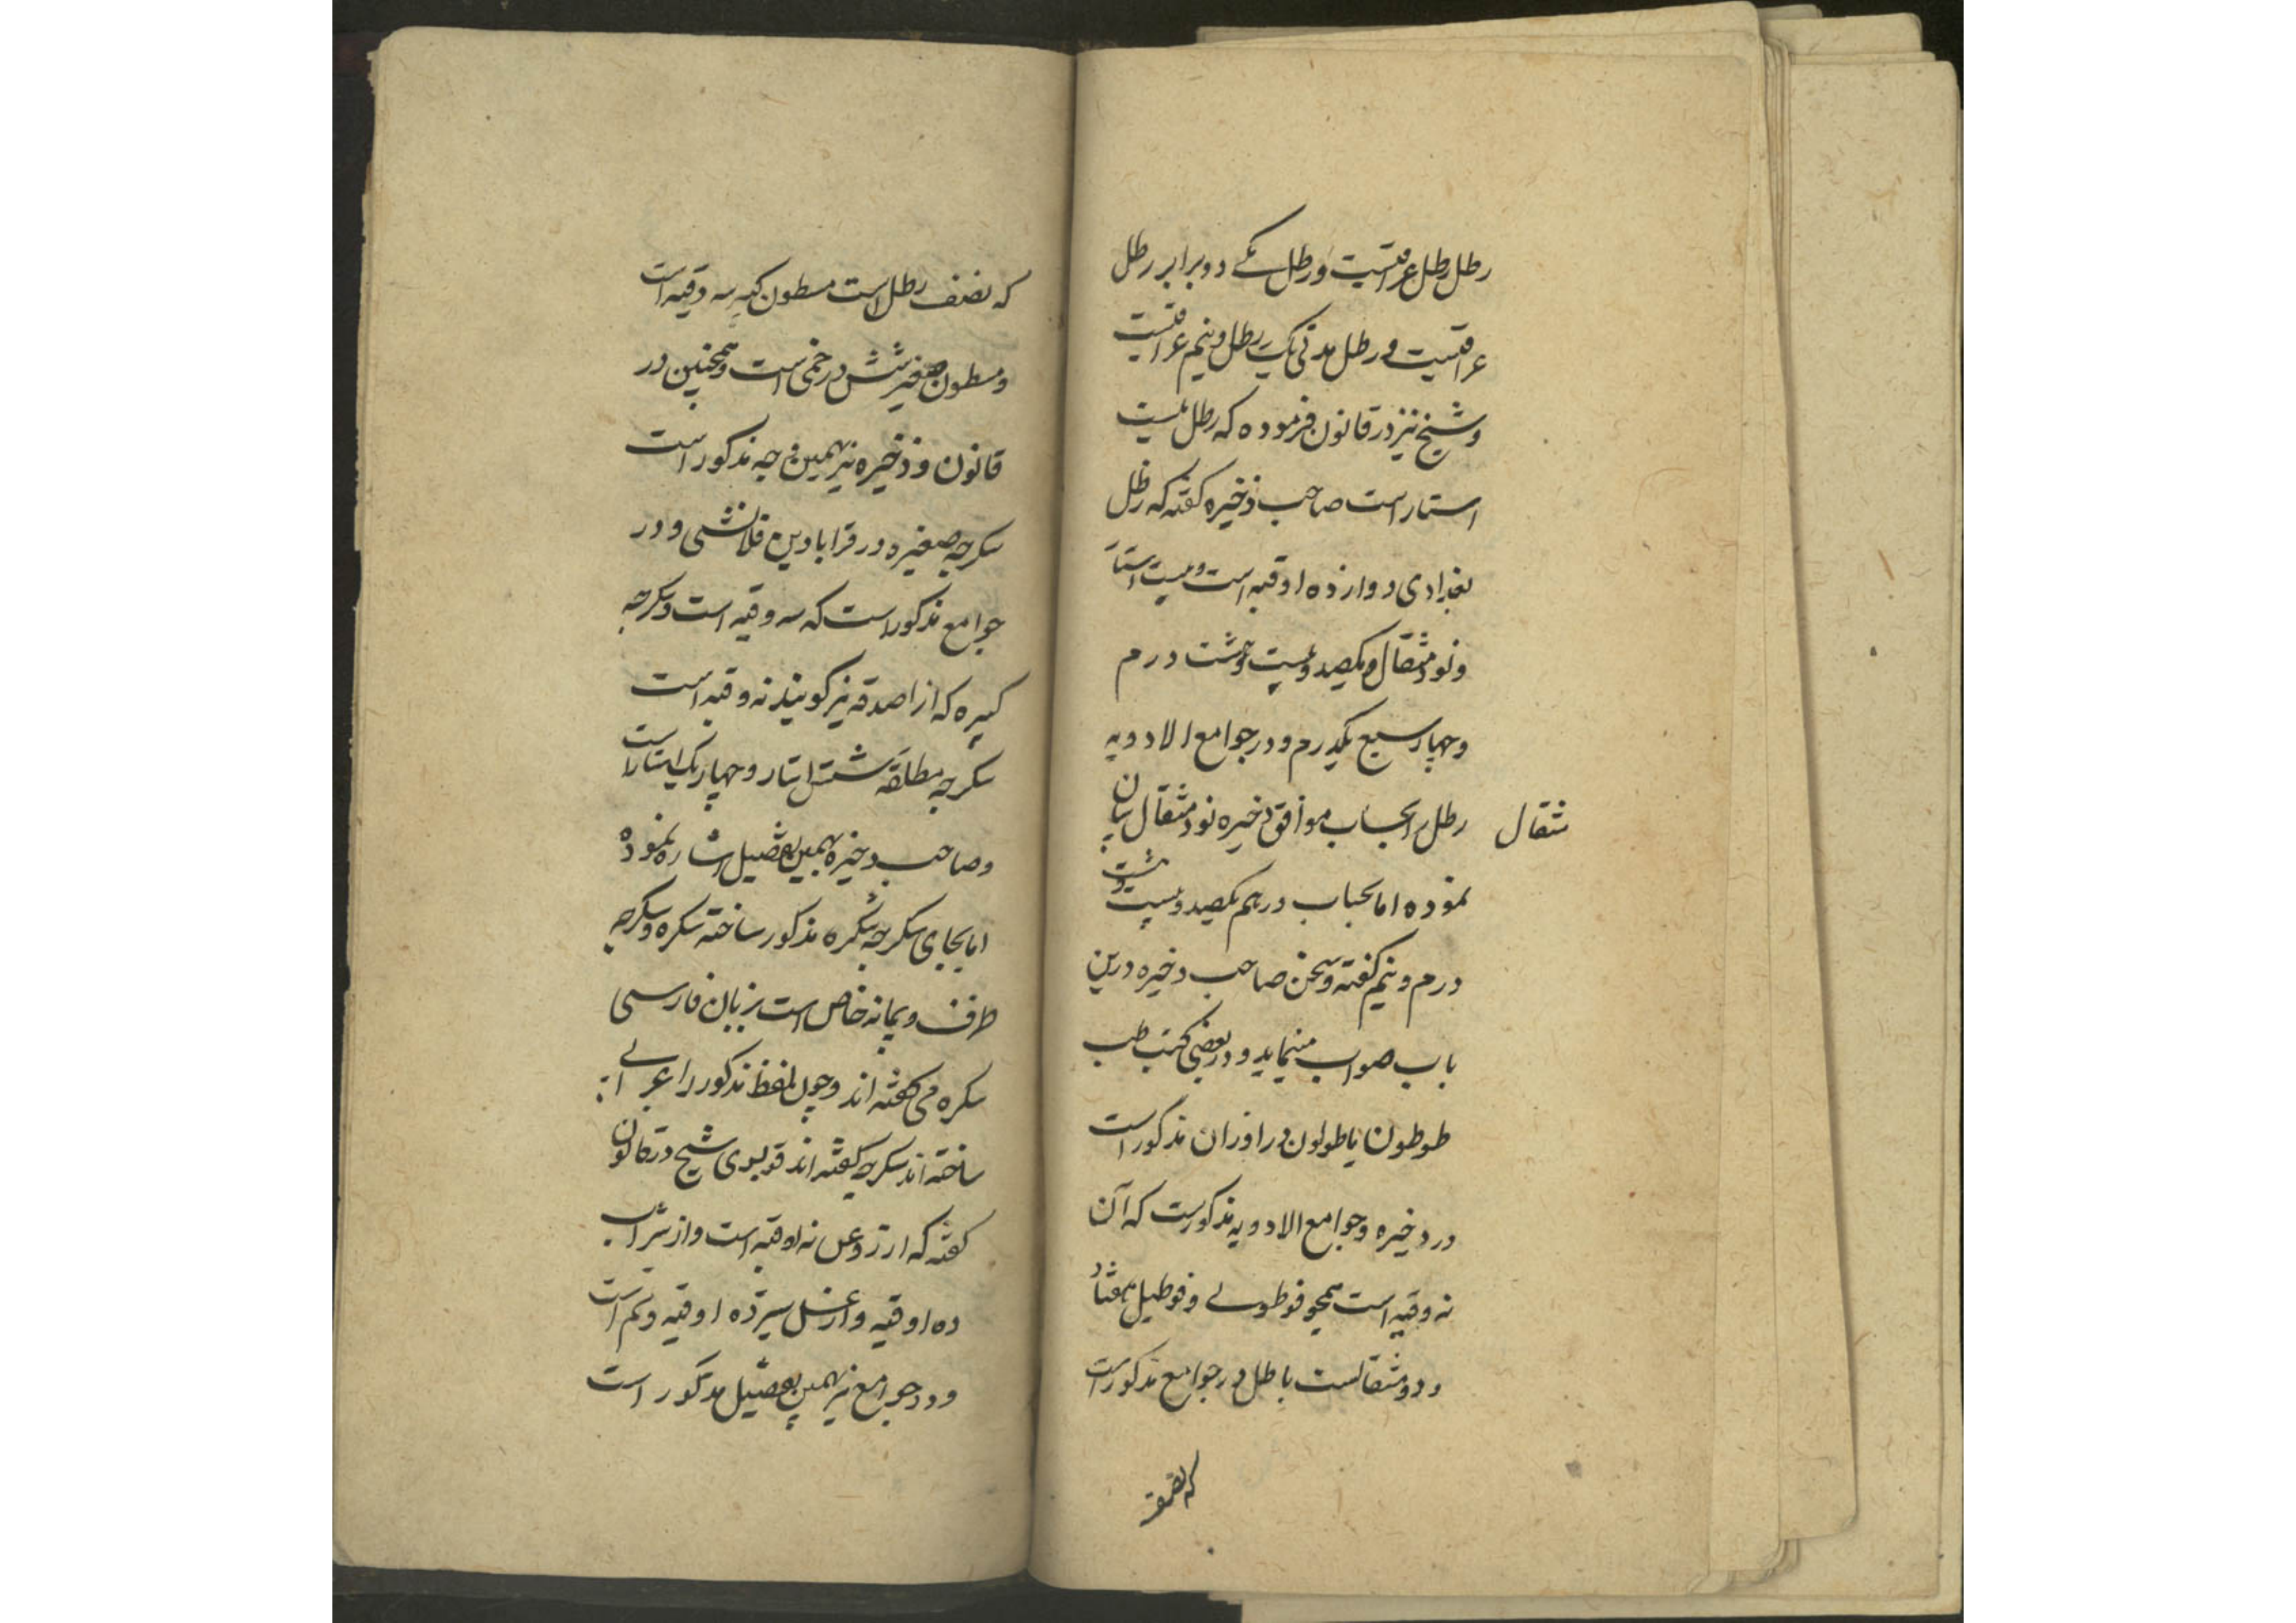 رطل رطل عراقیست و رطل مکے دو برابر رطل
عراقیست و رطل مدنی یک رطل و نیم عراقیست
و شیخ نیز در قانون فرموده که رطل بیست
استار است صاحب ذخیره کفته که رطل
بغدادی دوازده اوقیه است و بیست استار
و نود مثقال و یکصد و بیست و هشت درم
و چهار سبع یکدرم و در جوامع الادویه
رطل را بحساب موافق ذخیره نود مثقال بیان
مثقال
نموده اما بحساب درهم یکصد و بیست و هشت
درم و نیم کفته و سخن صاحب ذخیره درین
باب صواب مینماید و در بعضی کتب طب
طوطون یا طولون در اوزان مذکور است
در ذخیره و جوامع الادویه مذکورست که آن
نه وقیه است همچو قوطولے و قوطیل هفتاد
و دو مثقالست باطل در جوامع مذکور است
که نصف
که نصف رطل است مسطون کبیر سه وقیه است
و مسطون صغیر شش درخمی است و همچنین در
قانون و ذخیره نیز بهمین وجه مذکور است
سکرجه صغیره در قرابادین قلانسی و در
جوامع مذکور است که سه وقیه است و سکرجه
کبیره که انرا صدقه نیز کویند نه وقیه است
سکرجه مطلقه شش استار و چهار یک استار است
و صاحب ذخیره بهمین تفصیل اشاره نموده
اما بجای سکرجه سکره مذکور ساخته سکره و سکرجه
ظرف و پیمانه خاص است بزبان فارسی
سکره می کفته اند و چون لفظ مذکور را عربے
ساخته اند سکرجه کفته اند شیخ در قانون
کفته که از روغن نه اوقیه است و از شراب
ده اوقیه و از عسل سیزده اوقیه و نیم است
و در جوامع نیز بهمین تفصیل مذکور است